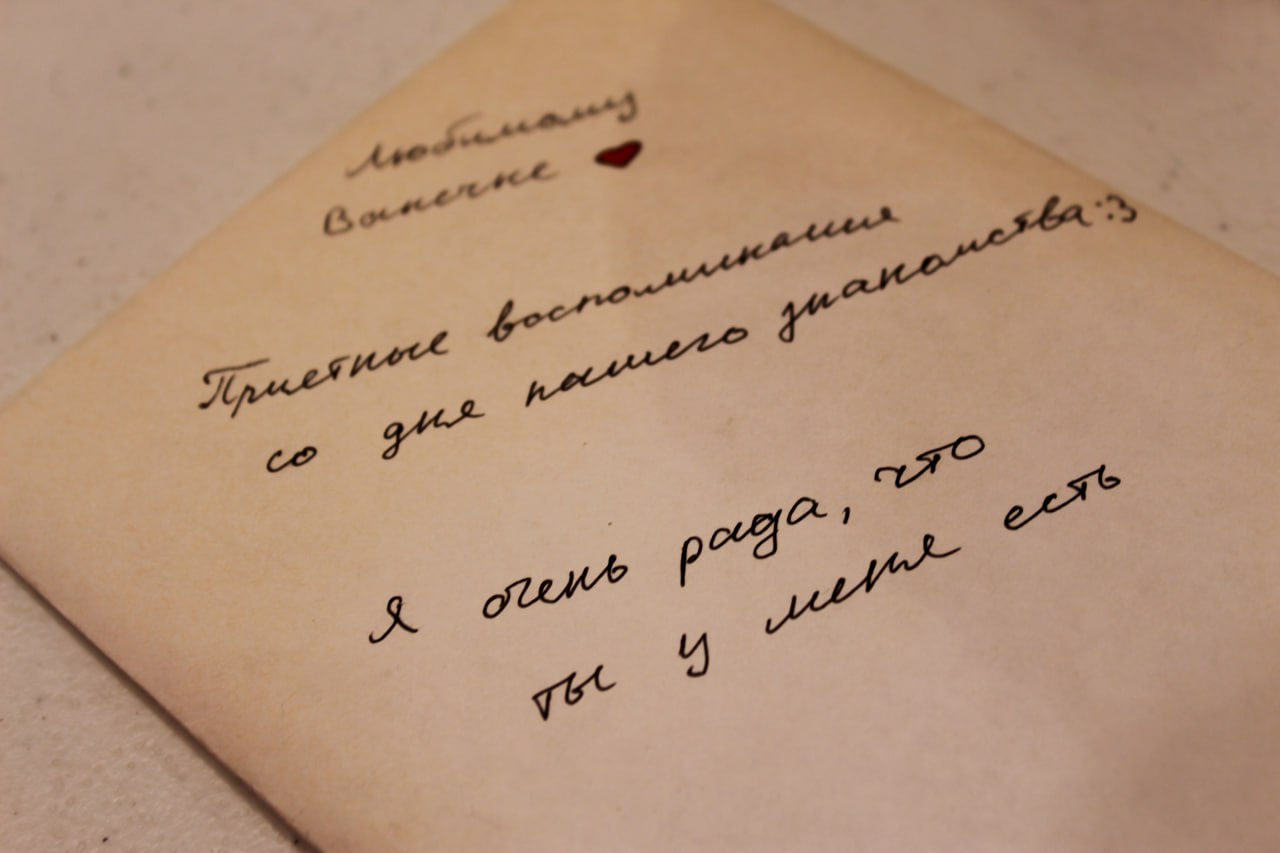 Любимому
Ванечке ❤
Приетные воспоминания
со дня нашего знакомства:3
Я очень рада, что
ты у меня есть